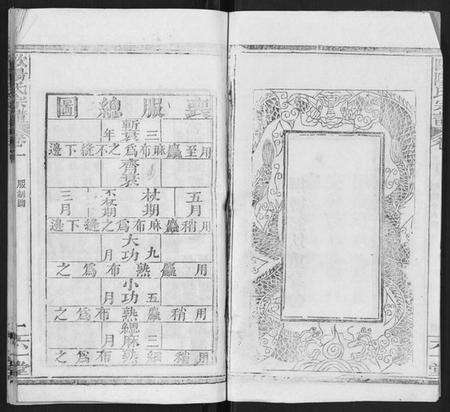 喪服總圖
斬衰三年
用至麤麻布為之不縫下邊
齊衰
五月
杖期
不杖期
三月
用稍麤麻布為之縫下邊
大功九月
用麤熟布為之
小功五月
用稍麤熟布為之
緦麻三月
用稍細熟布為之
歐陽氏宗譜 卷一 服制圖 六一堂